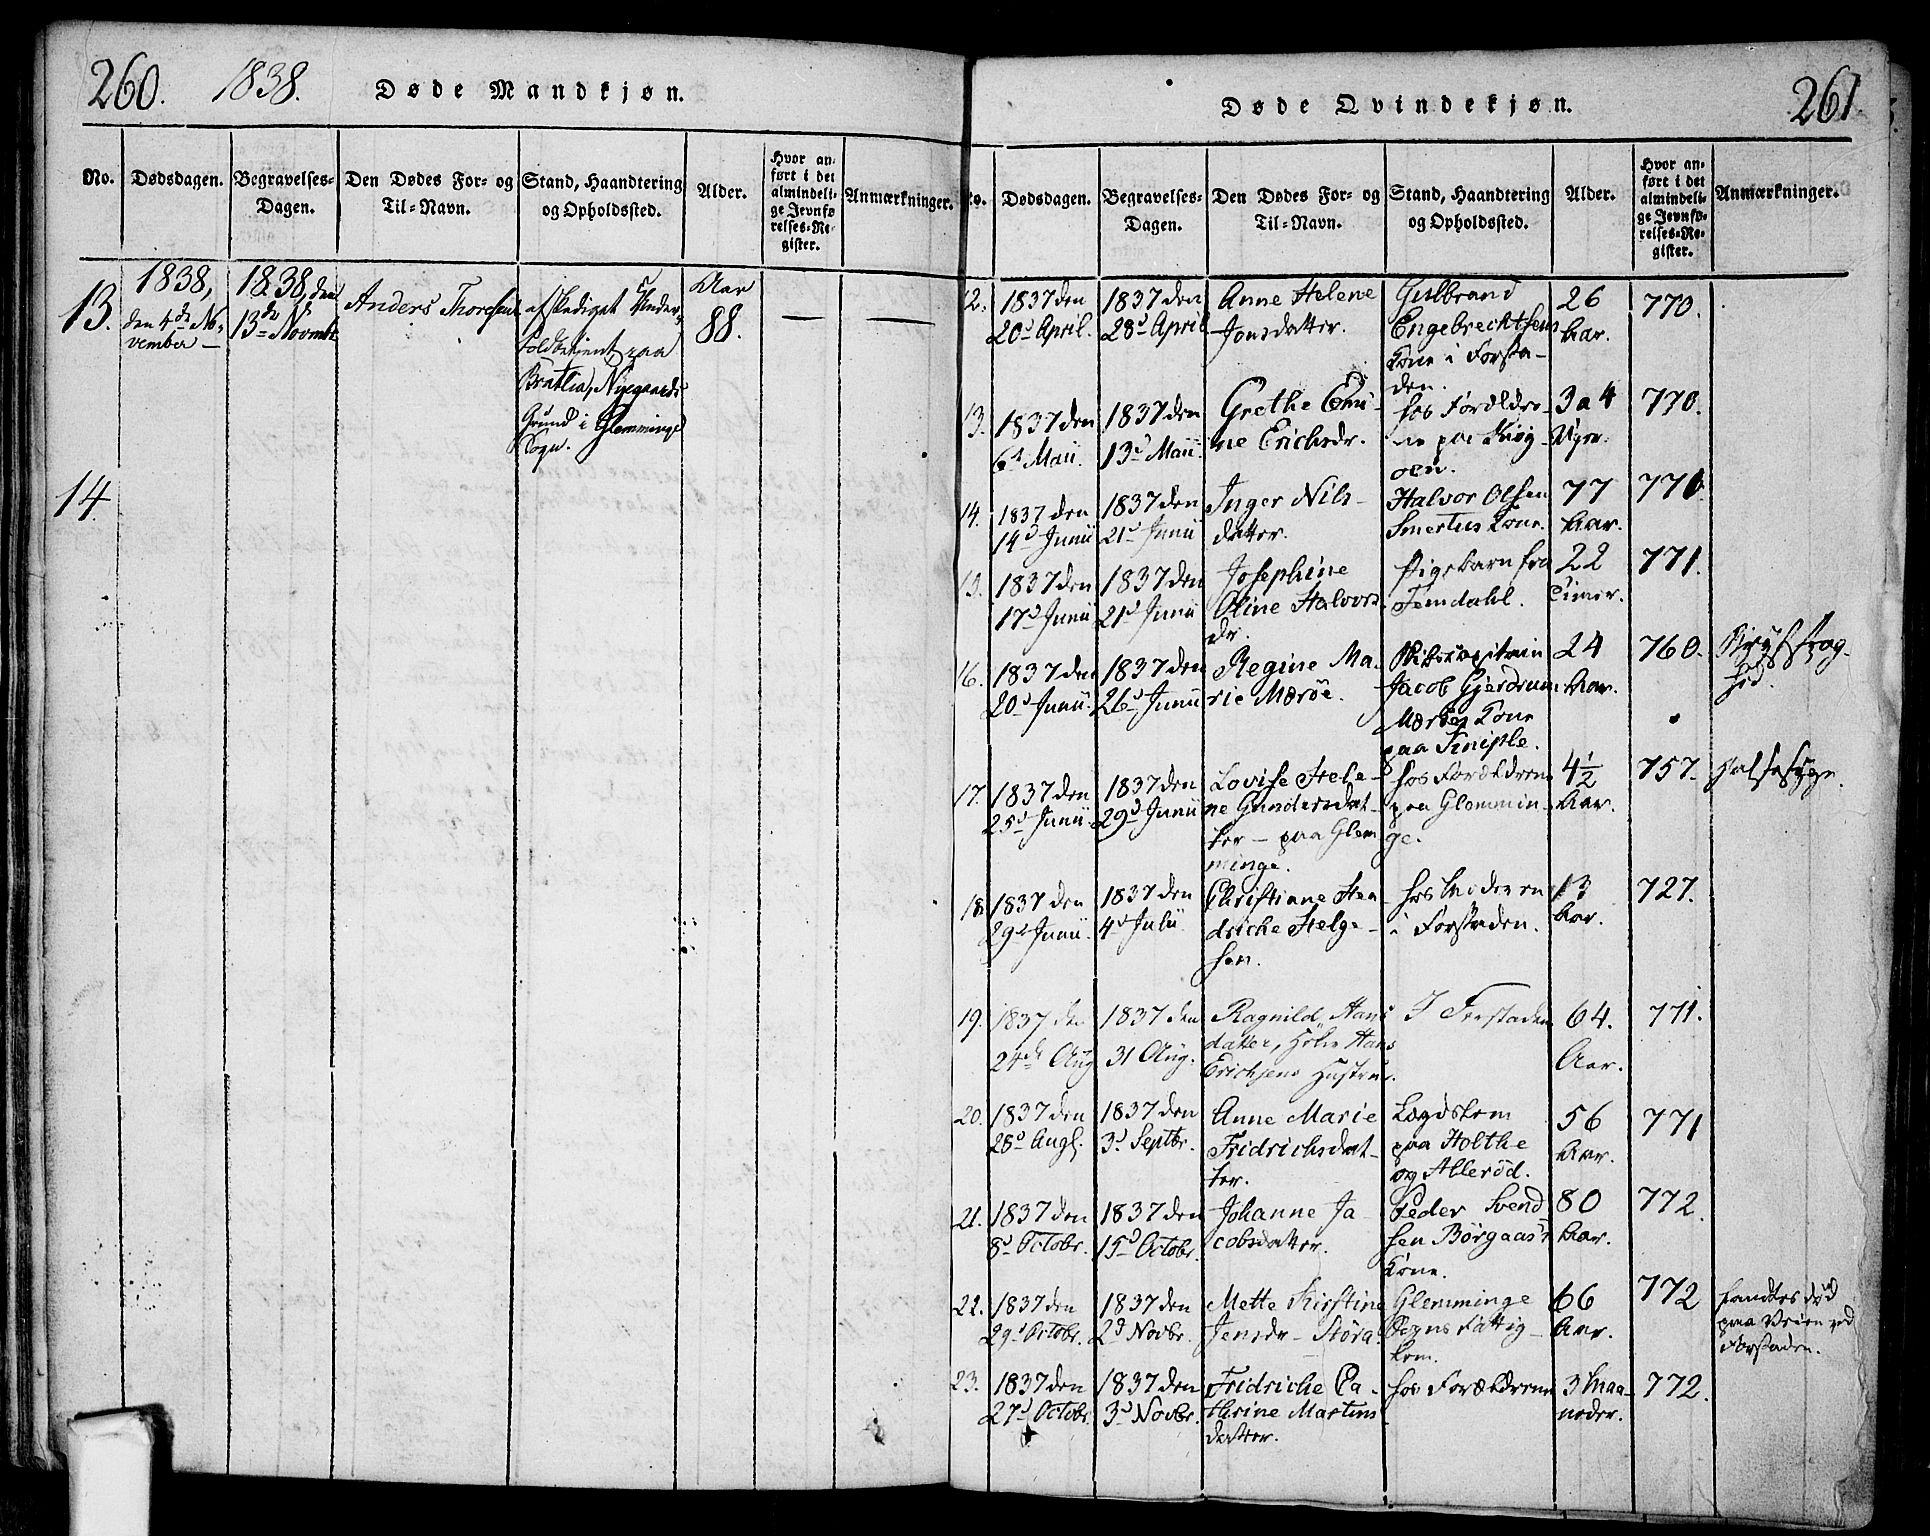 260. 1838. Døde Mandkjøn.
No. Dødsdagen. Begravelses-Dagen. Den Dødes For- og Til-Navn. Stand, Haandtering og Opholdssted. Alder. Hvor anført i det almindelige Jevnførelses-Register. Anmærkninger.
13. 1838, den 4de November — 1838, den 13de Novembr Anders Thoresen afskediget Under-Toldbetjent paa Bratlia, Nygaards Grund i Glemminge Sogn. Aar 88. — —
14.
Døde Qvindekjøn. 261
No. Dødsdagen. Begravelses-Dagen. Den Dødes For- og Til-Navn. Stand, Haandtering og Opholdssted. Alder. Hvor anført i det almindelige Jevnførelses-Register. Anmærkninger.
12. 1837 den 20d April. 1837 den 28d April Anne Helene Jonsdatter. Gulbrand Engebrechtsens Kone i Forstaden. 26 Aar. 770.
13. 1837 den 6d Maii. 1837 den 13d Maii. Grethe Emiline Erichsdr. hos Forældrene paa Kiøgøen. 3 a 4 Uger. 770.
14. 1837 den 14d Junii 1837 den 21d Junii Inger Nilsdatter. Halvor Olsen Smertus Kone. 77 Aar. 770.
15. 1837 den 17d Junii 1837 den 21d Junii Josephine Oline Halvorsdr. Pigebarn fra Temdahl. 22 Timer. 771.
16. 1837 den 20d Junii. 1837 den 26d Junii Regine Marie Mærøe. Skibscapitain Jacob Gjerdrum Mærøes Kone paa Siniple. 24 Aar. 760.
17. 1837 den 25d Junii. 1837 den 29d Junii Lovise Helene Gundersdatter — paa Glemminge. hos Forældrene paa Glemminge. 4½ Aar. 757. Halsesyge.
18 1837 den 29d Junii. 1837 den 4d Julii Christiane Headriche Helgesen. hos Moderen i Forstaden. 13 Aar. 727.
19. 1837 den 24de Aug 1837 den 31 Aug. Ragnild Hansdatter, Hans Erichsens Hustrue. I Forstaden 64. Aar. 771.
20. 1837 den 28d Augl. 1837 den 3d Septbr. Anne Marie Fridrichsdatter. Lægdslem paa Holthe og Allerød. 56 Aar. 771
21. 1837 den 8d Octobr. 1837 den 15d Octobr Johanne Jacobsdatter. Peder Svendsen Børgaas's Kone. 80 Aar. 772.
22. 1837 den 29d Octobr. 1837 den 2d Novbr. Mette Kirstine Jensdr — Støra. Glemminge Sogns Fattiglem. 66 Aar. 772 fandtes død paa Veien ved Forstaden.
23. 1837 den 27d Octobr. 1837 den 3d Novbr. Fridriche Cathrine Martinsdatter. hos Forældrene 3 Maaneder. 772.